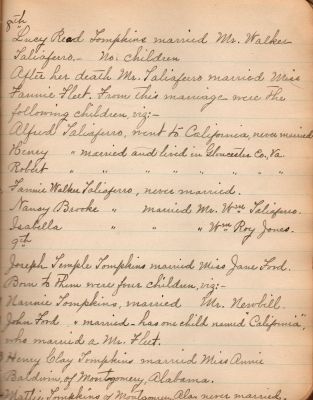 8th
Lucy Read Tompkins married Mr. Walker
Taliaferro. — No children
After her death Mr. Taliaferro married Miss
Fannie Fleet. From this marriage were the
following children, viz:-
Alfred Taliaferro, went to California, never married
Henry " married and lived in Gloucester Co. Va.
Robert " " " " " " " "
Fannie Walker Taliaferro, never married.
Nancy Brooke " married Mr. Wm Taliaferro.
Isabella " " " Wm Roy Jones.
9th
Joseph Temple Tompkins married Miss Jane Ford.
Born to them were four children, viz:-
Nannie Tompkins, married Mr. Newbill.
John Ford " married - has one child named "California",
who married a Mr. Fleet.
Henry Clay Tompkins married Miss Annie
Baldwin, of Montgomery, Alabama.
Tompkins of Montgomery Ala. never married.